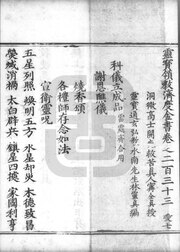 靈寳領教濟度金書卷之二百三十三
洞微高士開光救苦真人甯全真授
靈寳通玄弘教水南先生林靈真編
科儀立成品
謝恩醮儀
燒香頌
各禮師存念如法
宣衛靈呪
五星列照 煥明五方 水星却災 木德致昌
熒惑消禍 太白辟兵 鎮星四據 家國利亨